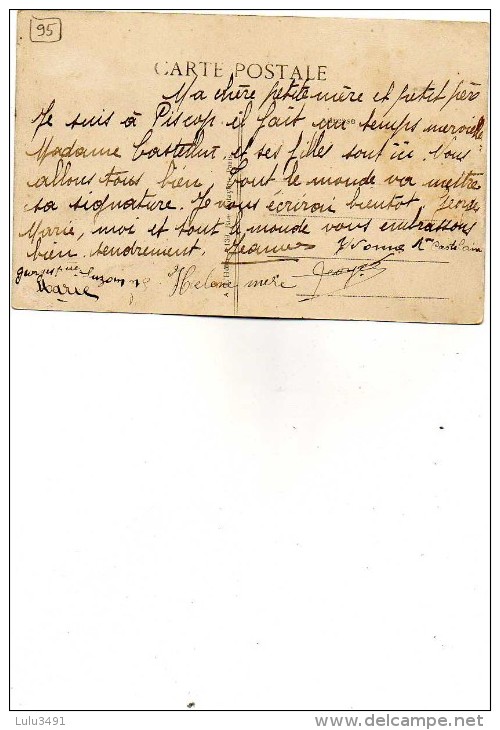 95
CARTE POSTALE
Ma chère petite mère et petit père
Je suis à Piscop il fait un temps merveille
Madame Castellut et ses filles sont ici. Nous
allons tous bien, tout le monde va mettre
sa signature. Je vous écrirai bientot. George
Marie, moi et tout le monde vous embrassons
bien tendrement. Jeanne Yvonne
Suzanne
Marie Helene mère
Lulu3491
delcampe.net